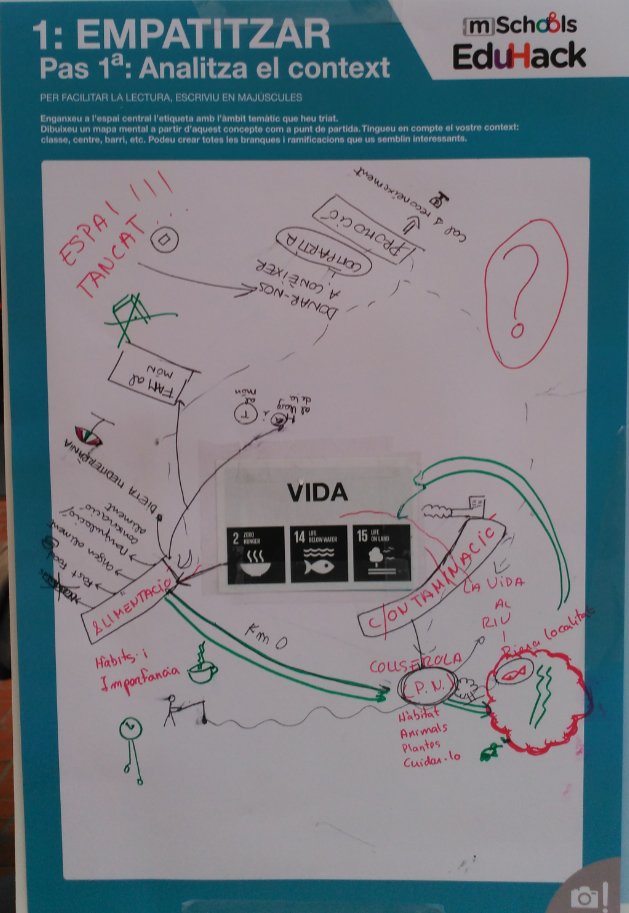 1: EMPATITZAR
Pas 1ª: Analitza el context
[mSchools
EduHack
PER FACILITAR LA LECTURA, ESCRIVIU EN MAJÚSCULES
Enganxeu a l'espai central l'etiqueta amb l'àmbit temàtic que heu triat.
Dibuixeu un mapa mental a partir d'aquest concepte com a punt de partida. Tingueu en compte el vostre context:
classe, centre, barri, etc. Podeu crear totes les branques i ramificacions que us semblin interessants.
ESPAI !!!
TANCAT
cal + reconeixement
PROMOCIÓ
COMPARTIR
DONAR-NOS
A CONÈIXER
?
FAM al
món
al llarg
de la
i
al
món
T
DIETA MEDITERRÀNIA
conservació
aliments
origen aliment
Fast food
ALIMENTACIÓ
VIDA
2 ZERO
HUNGER
14 LIFE
BELOW WATER
15 LIFE
ON LAND
CONTAMINACIÓ
LA VIDA
AL
RIU I
Km 0
Hàbits i
Importància
COLLSEROLA
P.N.
Hàbitat
Animals
Plantes
Cuidar-lo